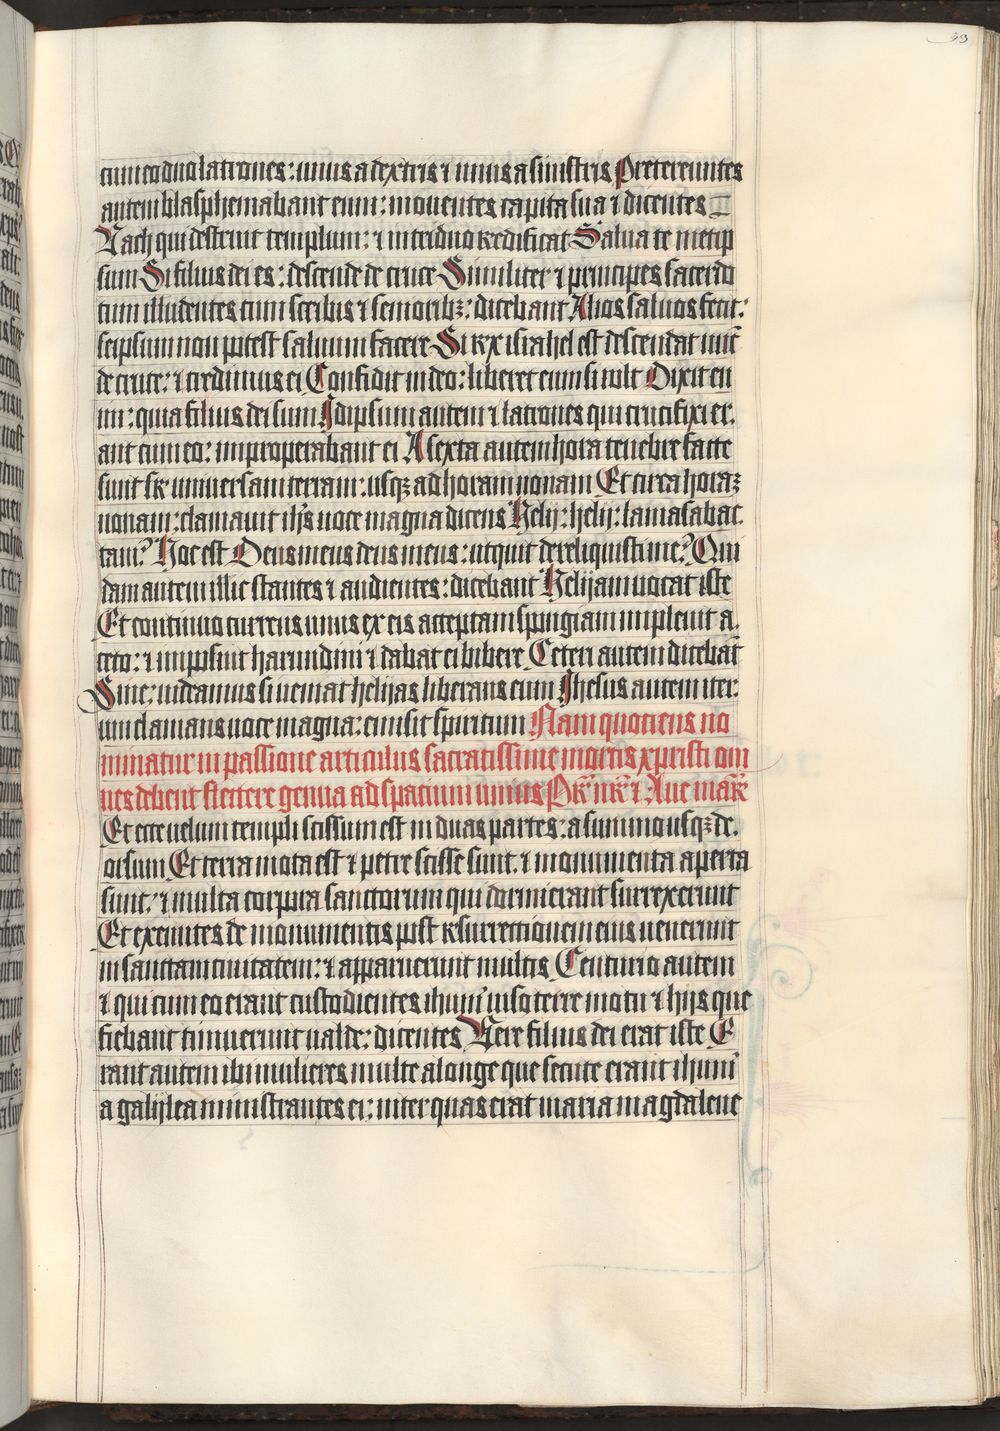 39
cum eo duo latrones: unus a dextris ⁊ unus a sinistris Pretereuntes
autem blasphemabant eum: moventes capita sua ⁊ dicentes
Vach qui destruit templum: ⁊ in triduo reedificat Salva te metip
sum Si filius dei es: descende de cruce Similiter ⁊ principes sacerdo
tum illudentes cum scribis ⁊ senioribꝫ: dicebant Alios salvos fecit:
seipsum non potest salvum facere Si rex israhel est descendat nūc
de cruce: ⁊ credimus ei Confidit in deo: liberet eum si volt Dixit en
im: quia filius dei sum Idipsum autem ⁊ latrones qui crucifixi er
ant cum eo: improperabant ei A sexta autem hora tenebre facte
sunt sr̄ universam terram: usqꝫ ad horam nonam Et circa horaꝫ
nonam: clamavit ih̄s voce magna dicens Helij: helij: lama sabac
tani? Hoc est Deus meus deus meus: ut quit dereliquisti me? Qui
dam autem illic stantes ⁊ audientes: dicebant Helijam vocat iste
Et continuo currens unus ex eis acceptam spugiam implevit a
ceto: ⁊ imposuit harundini ⁊ dabat ei bibere Ceteri autem dicebāt
Sine: videamus si veniat helijas liberans eum Ihesus autem iter
um clamans voce magna: emisit spiritum Nam quotiens no
minatur in passione articulus sacratissime mortis xpristi om
nes debent flectere genua ad spatium unius Pr̄ nr̄ ⁊ Ave mar̄
Et ecce velum templi scissum est in duas partes: a summo usqꝫ de
orsum Et terra mota est ⁊ petre scisse sunt: ⁊ monumenta aperta
sunt: ⁊ multa corpora sanctorum qui dormierant surrexerunt
Et exeuntes de monumentis post resurrectionem eius venerunt
in sanctam civitatem: ⁊ apparuerunt multis Centurio autem
⁊ qui cum eo erant custodientes ihum̄ viso terre motu ⁊ hijs que
fiebant timuerunt valde: dicentes Vere filius dei erat iste E
rant autem ibi mulieres multe a longe que secute erant ihum̄
a galijlea ministrantes ei: inter quas erāt maria magdalene